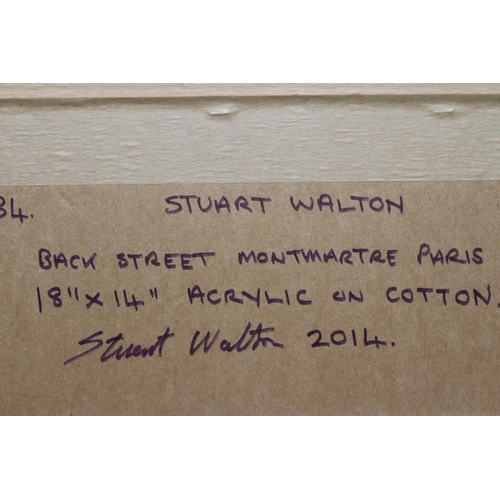 34. STUART WALTON
BACK STREET MONTMARTRE PARIS
18" x 14" ACRYLIC ON COTTON.
Stuart Walton 2014.